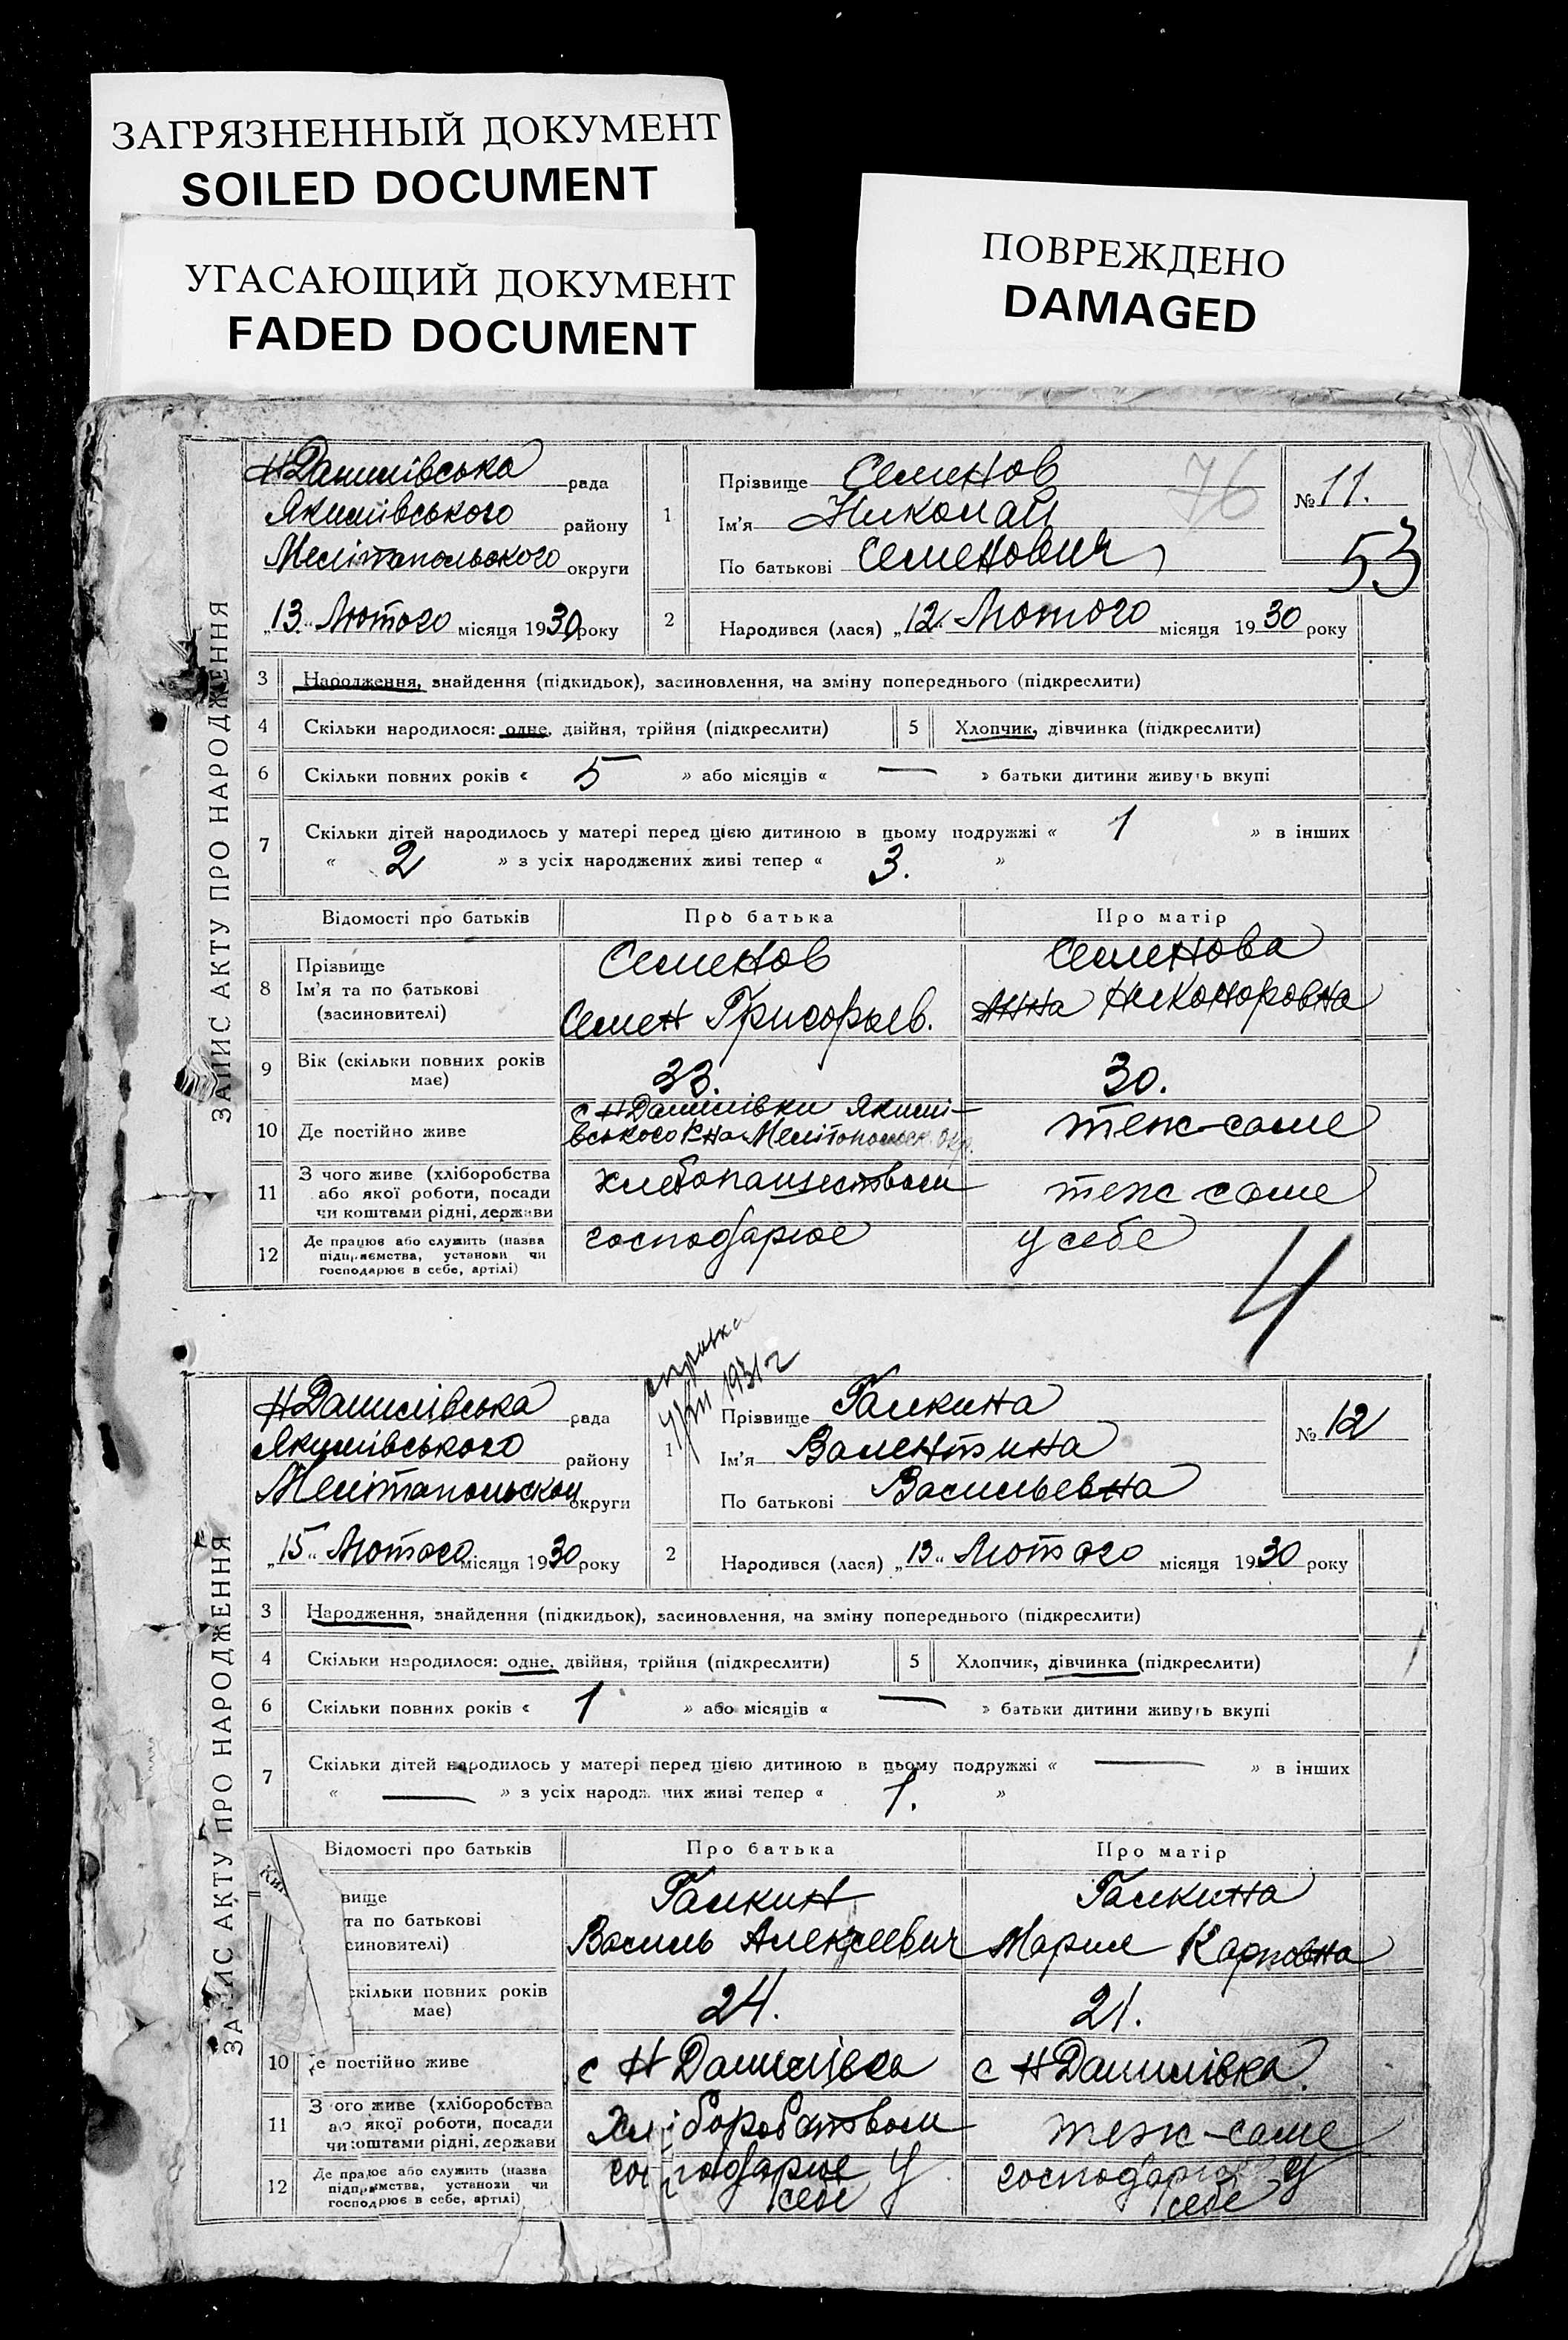 ЗАГРЯЗНЕННЫЙ ДОКУМЕНТ
SOILED DOCUMENT
УГАСАЮЩИЙ ДОКУМЕНТ
FADED DOCUMENT
ПОВРЕЖДЕНО
DAMAGED
ЗАПИС АКТУ ПРО НАРОДЖЕННЯ
Н Данилівська рада
Якимівського району
Мелітопольського округи
„13“ Лютого місяця 1930 року
1 Прізвище Семенов
Ім'я Николай
По батькові Семенович
76
№ 11.
53
2 Народився (лася) „12“ Лютого місяця 1930 року
3 Народження, знайдення (підкидьок), засиновлення, на зміну попереднього (підкреслити)
4 Скільки народилося: одне, двійня, трійня (підкреслити) 5 Хлопчик, дівчинка (підкреслити)
6 Скільки повних років « 5 » або місяців « — » батьки дитини живуть вкупі
7 Скільки дітей народилось у матері перед цією дитиною в цьому подружжі « 1 » в інших
« 2 » з усіх народжених живі тепер « 3. »
Відомості про батьків Про батька Про матір
8 Прізвище
Ім'я та по батькові
(засиновителі)
Семенов
Семен Григорьев.
Семенова
Анна Никоноровна
9 Вік (скільки повних років
має)
33. 30.
10 Де постійно живе
с Н Данилівки Якимі-
вського Р-на Мелітопольск. Окр.
теж-саме
11 З чого живе (хліборобства
або якої роботи, посади
чи коштами рідні, держави
хлебопашеством теж саме
12 Де працює або служить (назва
підприємства, установи чи
господарює в себе, артілі)
господарює у себе
4
справка
1931 г
ЗАПИС АКТУ ПРО НАРОДЖЕННЯ
Н Данилівська рада
Якимівського району
Мелітопольской округи
„15“ Лютого місяця 1930 року
1 Прізвище Галкина
Ім'я Валентина
По батькові Васильевна
№ 12
2 Народився (лася) „13“ Лютого місяця 1930 року
3 Народження, знайдення (підкидьок), засиновлення, на зміну попереднього (підкреслити)
4 Скільки народилося: одне, двійня, трійня (підкреслити) 5 Хлопчик, дівчинка (підкреслити)
6 Скільки повних років « 1 » або місяців « — » батьки дитини живуть вкупі
7 Скільки дітей народилось у матері перед цією дитиною в цьому подружжі « — » в інших
« — » з усіх народж них живі тепер « 1. »
Відомості про батьків Про батька Про матір
вище
та по батькові
синовителі)
Галкин
Василь Алексеевич
Галкина
Мария Карповна
скільки повних років
має)
24. 21.
10 е постійно живе
с Н Данилівка с Н Данилівка
11 З ого живе (хліборобства
або якої роботи, посади
чи коштами рідні, держави
Хліборобством теж-саме
12 Де працює або служить (назва
підприємства, установи чи
господарює в себе, артілі)
господарює у
себе
господарює у
себе